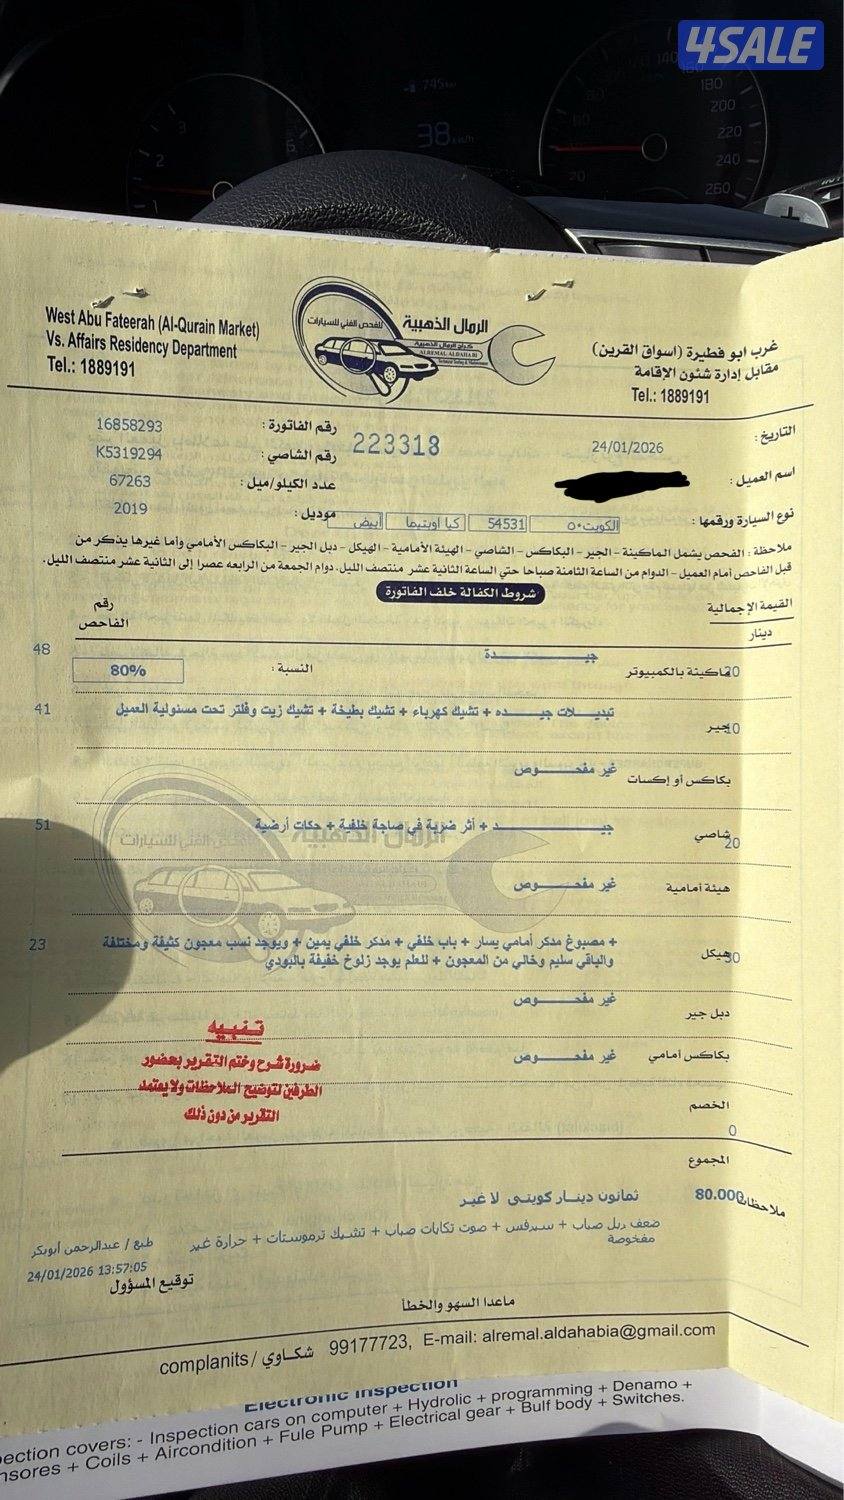 4SALE
745 km
38 km/h
180
200
220
240
260
West Abu Fateerah (Al-Qurain Market)
Vs. Affairs Residency Department
Tel.: 1889191
الرمال الذهبية
للفحص الفني للسيارات
كراج الرمال الذهبية
ALREMAL ALDAHABI
Technical Testing & Maintenance
غرب ابو فطيرة (اسواق القرين)
مقابل إدارة شئون الإقامة
Tel.: 1889191
التاريخ: 24/01/2026
223318
رقم الفاتورة: 16858293
اسم العميل:
رقم الشاصي: K5319294
عدد الكيلو/ميل: 67263
نوع السيارة ورقمها: الكويت٥٠ 54531 كيا أوبتيما أبيض
موديل: 2019
ملاحظة: الفحص يشمل الماكينة - الجير - البكاكس - الشاصي - الهيئة الأمامية - الهيكل - دبل الجير - البكاكس الأمامي وأما غيرها يذكر من
قبل الفاحص أمام العميل - الدوام من الساعة الثامنة صباحا حتي الساعة الثانية عشر منتصف الليل. دوام الجمعة من الرابعه عصرا إلى الثانية عشر منتصف الليل.
شروط الكفالة خلف الفاتورة
القيمة الإجمالية
دينار
رقم
الفاحص
ماكينة بالكمبيوتر 20 جيـــدة النسبة: 80% 48
جير 10 تبديـلات جيـــده + تشيك كهرباء + تشيك بطيخة + تشيك زيت وفلتر تحت مسئولية العميل 41
بكاكس أو إكسات غير مفحـــوص
شاصي 20 جيـــد + أثر ضربة في صاجة خلفية + حكات أرضية 51
هيئة أمامية غير مفحـــوص
هيكل 30 + مصبوغ مدكر أمامي يسار + باب خلفي + مدكر خلفي يمين + ويوجد نسب معجون كثيفة ومختلفة 23
والباقي سليم وخالي من المعجون + للعلم يوجد زلوخ خفيفة بالبودي
دبل جير غير مفحـــوص
بكاكس أمامي غير مفحـــوص
تنبيه
ضرورة شرح وختم التقرير بحضور
الطرفين لتوضيح الملاحظات ولا يعتمد
التقرير من دون ذلك
الخصم
0
المجموع
80.000 ثمانون دينـار كويتي لا غير
ملاحظات
ضعف ربل صباب + سيرفس + صوت تكايات صباب + تشيك ترموستات + حرارة غير
مفخوصة
طبع / عبدالرحمن أبوبكر
24/01/2026 13:57:05
توقيع المسؤول
ماعدا السهو والخطأ
complanits / شكاوي 99177723, E-mail: alremal.aldahabia@gmail.com
Electronic Inspection
pection covers: - Inspection cars on computer + Hydrolic + programming + Denamo +
nsores + Coils + Aircondition + Fule Pump + Electrical gear + Bulf body + Switches.